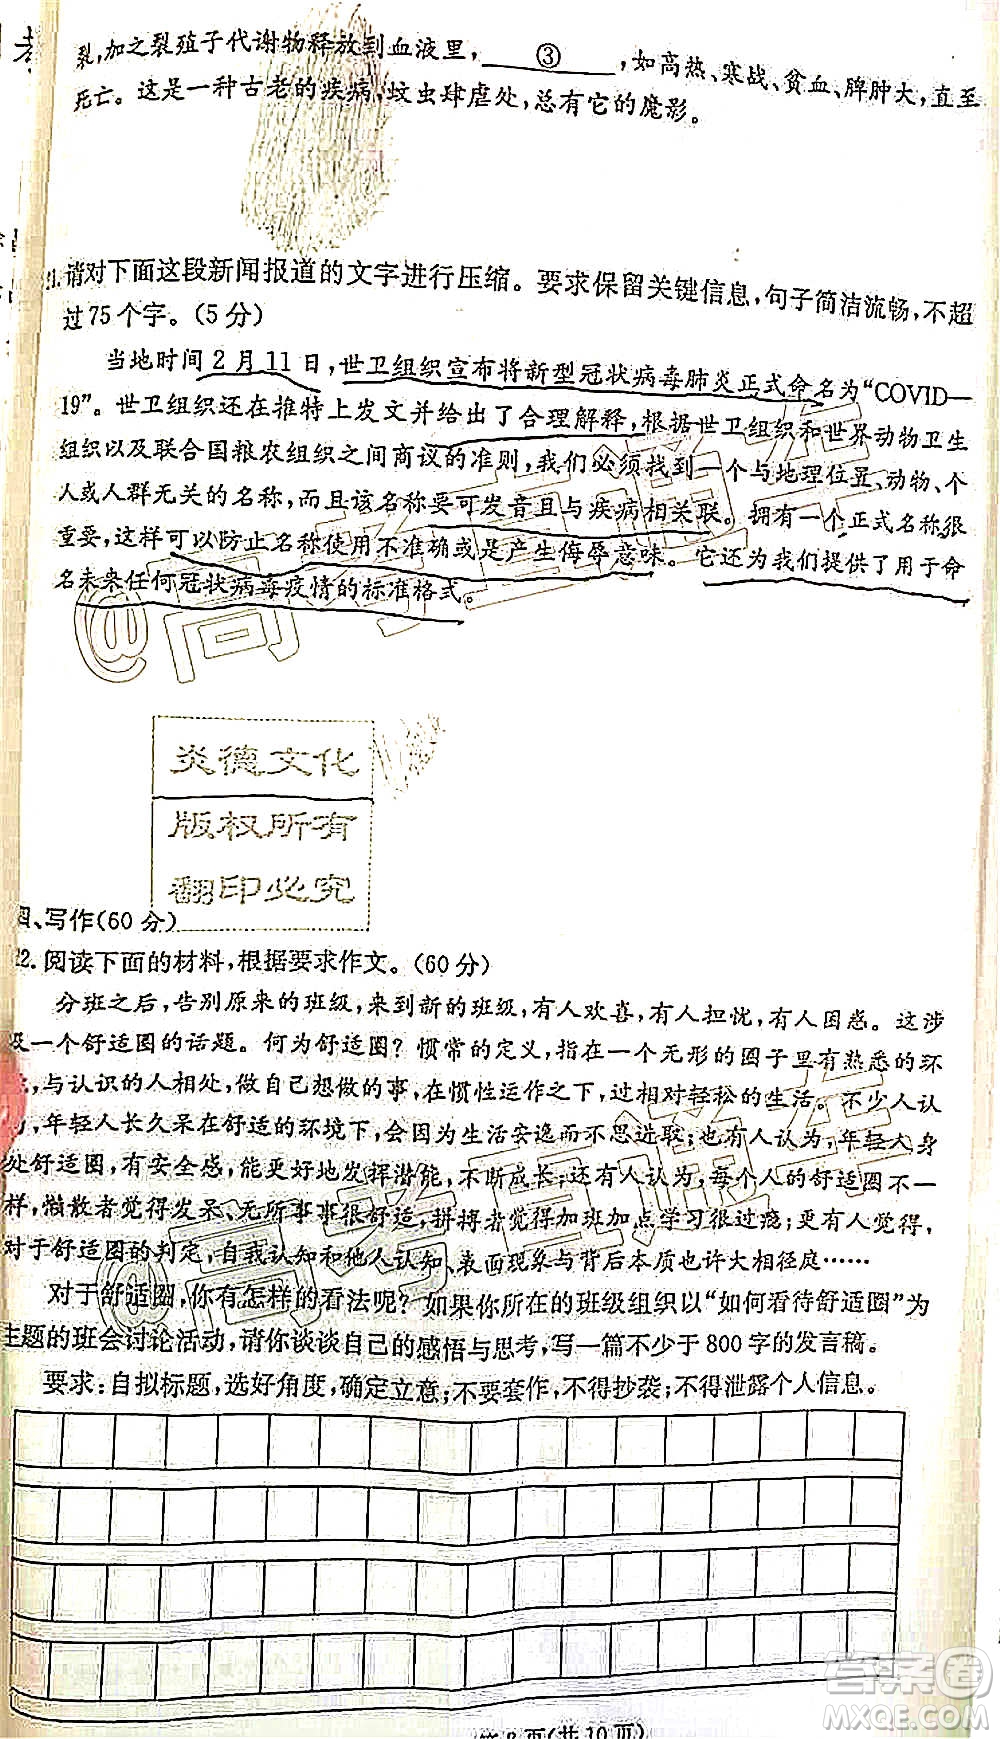 裂,加之裂殖子代谢物释放到血液里,③,如高热、寒战、贫血、脾肿大,直至
死亡。这是一种古老的疾病,蚊虫肆虐处,总有它的魔影。
请对下面这段新闻报道的文字进行压缩。要求保留关键信息,句子简洁流畅,不超
过75个字。(5分)
当地时间2月11日,世卫组织宣布将新型冠状病毒肺炎正式命名为“COVID—
19”。世卫组织还在推特上发文并给出了合理解释,根据世卫组织和世界动物卫生
组织以及联合国粮农组织之间商议的准则,我们必须找到一个与地理位置、动物、个
人或人群无关的名称,而且该名称要可发音且与疾病相关联。拥有一个正式名称很
重要,这样可以防止名称使用不准确或是产生侮辱意味。它还为我们提供了用于命
名未来任何冠状病毒疫情的标准格式。
炎德文化
版权所有
翻印必究
四、写作(60分)
22.阅读下面的材料,根据要求作文。(60分)
分班之后,告别原来的班级,来到新的班级,有人欢喜,有人担忧,有人困惑。这涉
及一个舒适圈的话题。何为舒适圈?惯常的定义,指在一个无形的圈子里有熟悉的环
,与认识的人相处,做自己想做的事,在惯性运作之下,过相对轻松的生活。不少人认
为,年轻人长久呆在舒适的环境下,会因为生活安逸而不思进取;也有人认为,年轻人身
处舒适圈,有安全感,能更好地发挥潜能,不断成长;还有人认为,每个人的舒适圈不一
样,懒散者觉得发呆、无所事事很舒适,拼搏者觉得加班加点学习很过瘾;更有人觉得,
对于舒适圈的判定,自我认知和他人认知、表面现象与背后本质也许大相径庭……
对于舒适圈,你有怎样的看法呢?如果你所在的班级组织以“如何看待舒适圈”为
主题的班会讨论活动,请你谈谈自己的感悟与思考,写一篇不少于800字的发言稿。
要求:自拟标题,选好角度,确定立意;不要套作,不得抄袭;不得泄露个人信息。
页(共10页)
@高考直通车
@高考直通车
答案卷
MXQE.COM